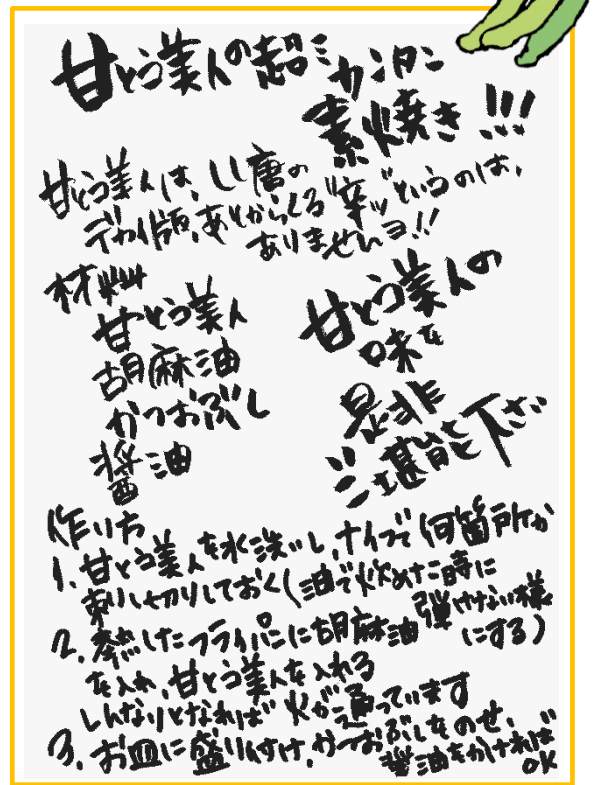 甘とう美人の超ミカンタン
素焼き!!!
甘とう美人は、しし唐の
デカイ版、あとからくる“辛ッ”というのは、
ありませんヨ!!
材料
甘とう美人
胡麻油
かつおぶし
醤油
甘とう美人の
味を
是非
ご堪能下さい
作り方
1.甘とう美人を水洗いし、ナイフで何箇所か
刺し切りしておく(油で炒めた時に
弾けない様
にする)
2.熱したフライパンに胡麻油
を入れ、甘とう美人を入れる
しんなりとなれば火が通っています
3.お皿に盛り付け、かつおぶしをのせ、
醤油をかければ
OK